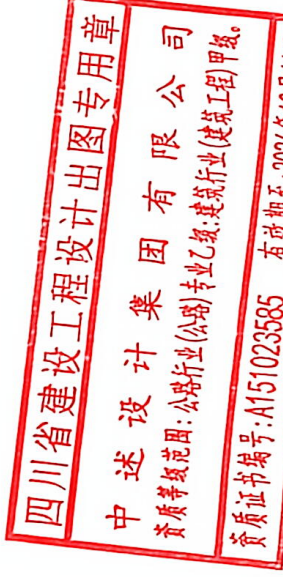 四川省建设工程设计出图专用章
中述设计集团有限公司
资质等级范围:公路行业(公路)专业乙级;建筑行业(建筑工程)甲级。
资质证书编号:A151023585 有效期至: